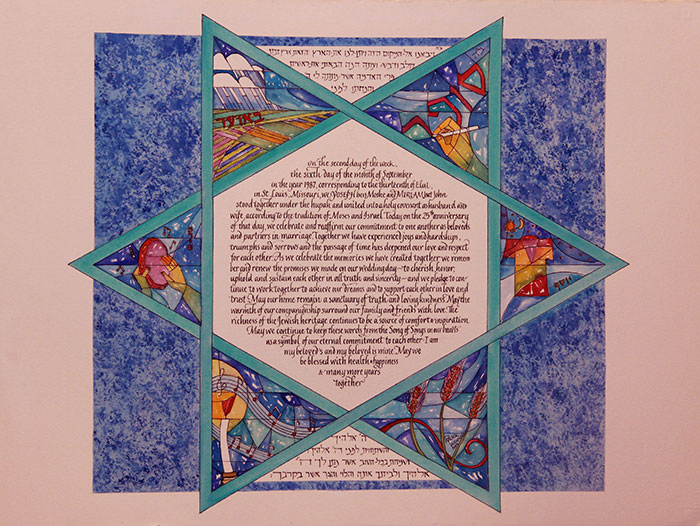 חלב ודבש ועתה הנה הבאתי את ראשית
סופר
on the second day of the week,
the sixth day of the month of September
in the year 1987, corresponding to the thirteenth of Elul,
in St. Louis, Missouri, we, YOSEPH ben Moshe and MIRIAM bat John
stood together under the hupah and united into a holy covenant as husband and
wife, according to the tradition of Moses and Israel. Today on the 25th anniversary
of that day, we celebrate and reaffirm our commitment to one another as beloveds
and partners in marriage. Together we have experienced joys and hardships,
triumphs and sorrows and the passage of time has deepened our love and respect
for each other. As we celebrate the memories we have created together we remem
ber and renew the promises we made on our wedding day—to cherish, honor,
uphold and sustain each other in all truth and sincerity—and we pledge to con-
tinue to work together to achieve our dreams and to support each other in love and
trust. May our home remain a sanctuary of truth and loving kindness. May the
warmth of our companionship surround our family and friends with love. The
richness of the Jewish heritage continues to be a source of comfort & inspiration.
May we continue to keep these words from the Song of Songs in our hearts
as a symbol of our eternal commitment to each other: I am
my beloved's and my beloved is mine. May we
be blessed with health & happiness
& many more years
together